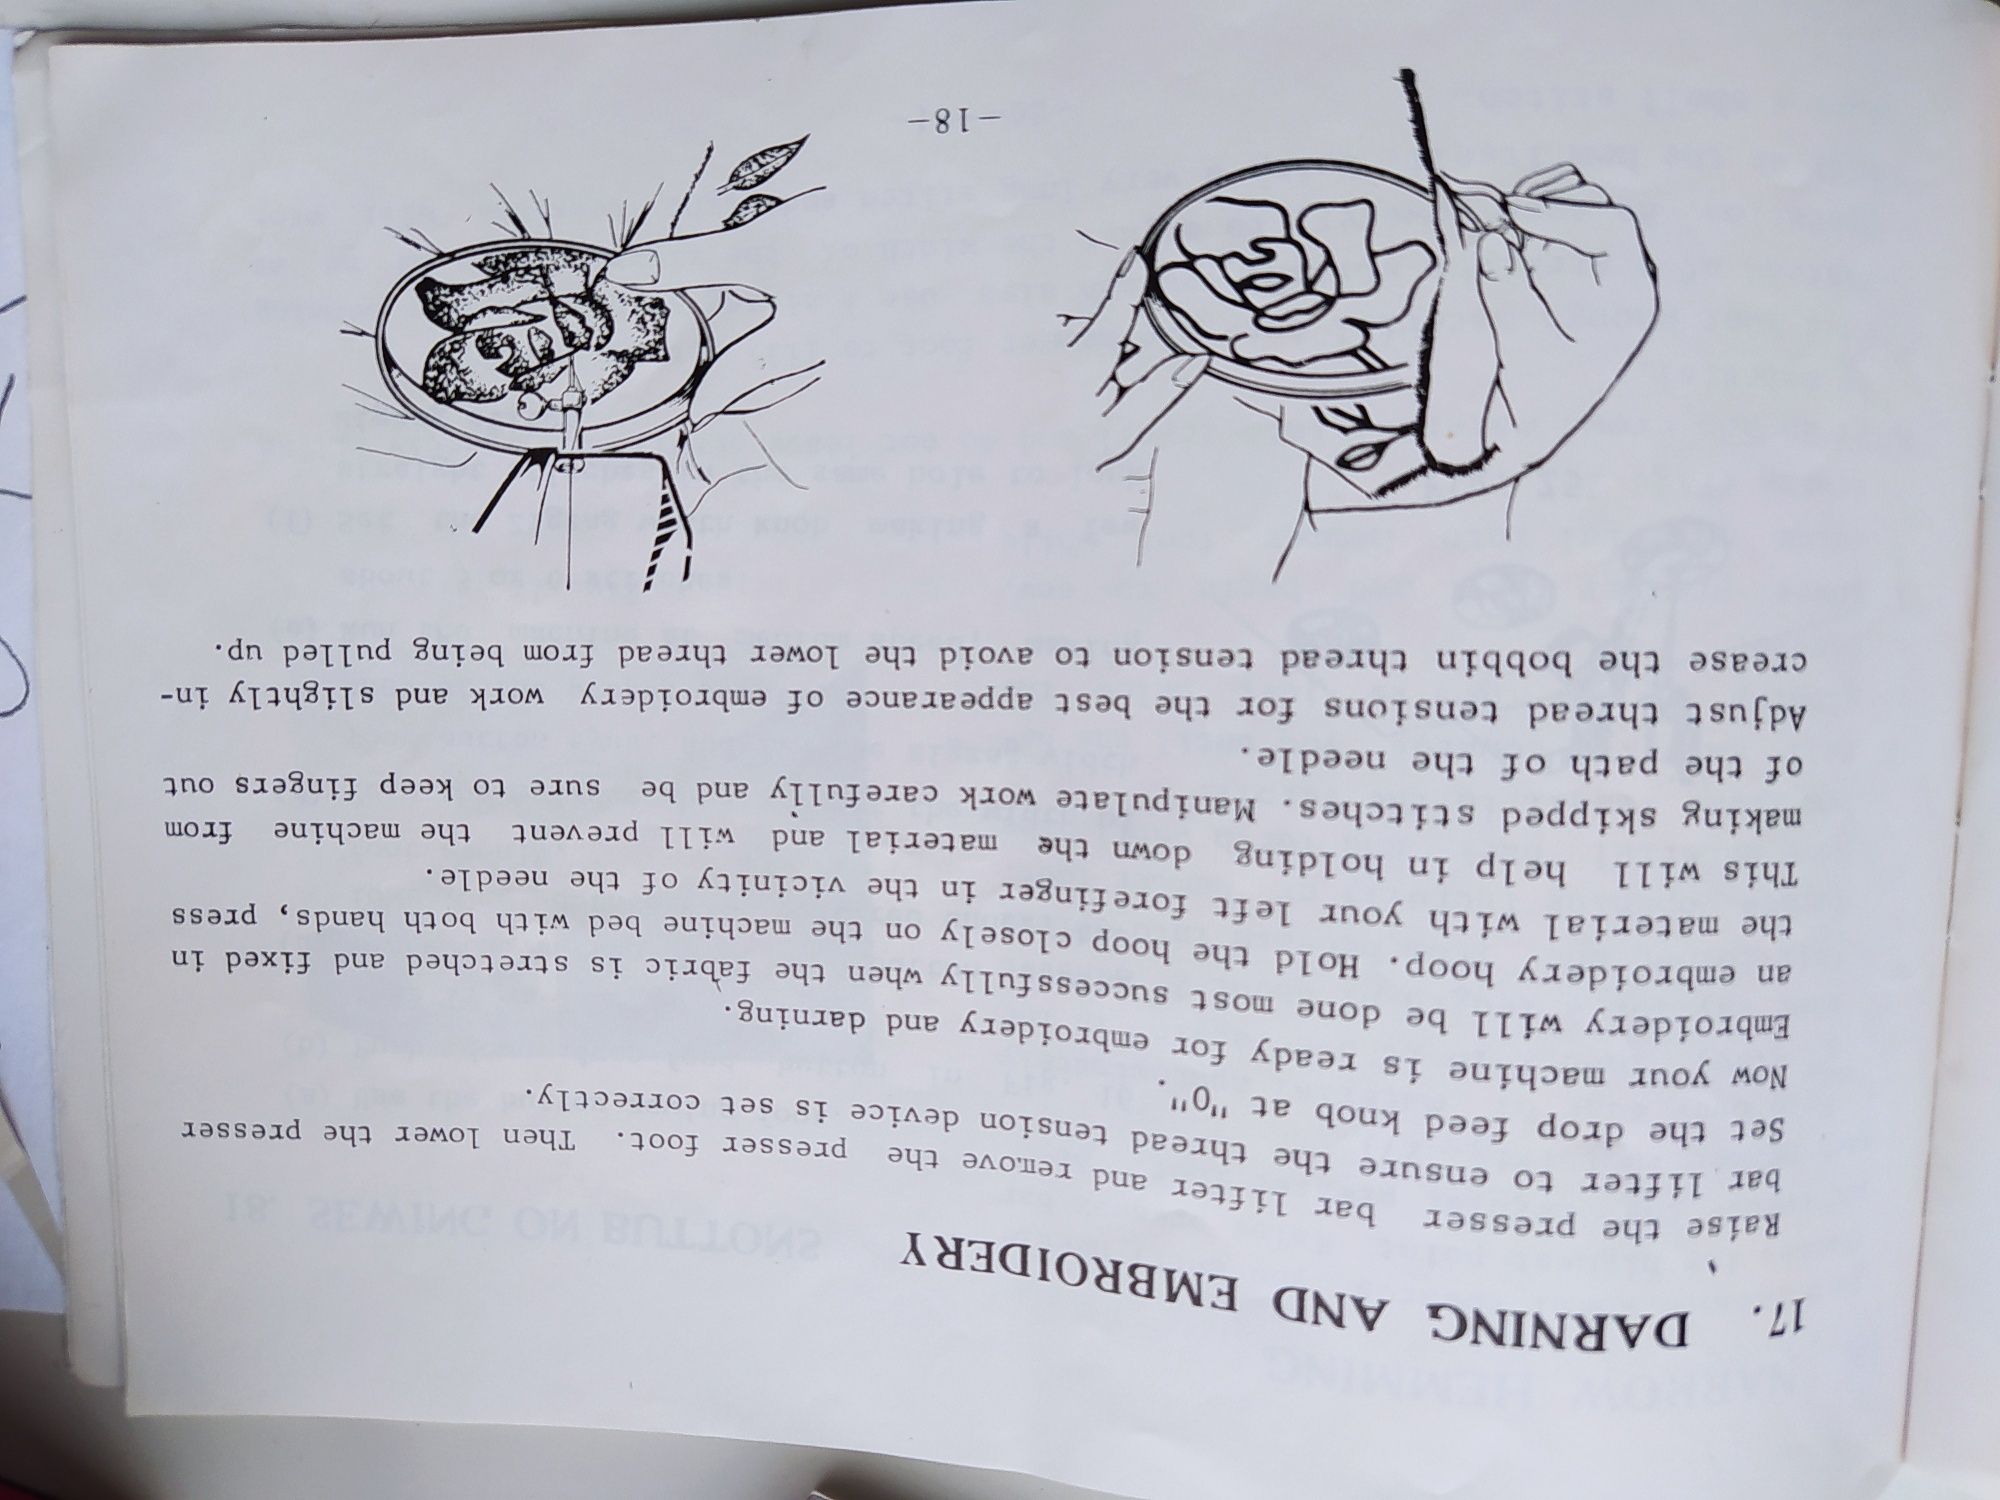 17. DARNING AND EMBROIDERY
Raise the presser bar lifter and remove the presser foot. Then lower the presser
bar lifter to ensure the thread tension device is set correctly.
Set the drop feed knob at "0".
Now your machine is ready for embroidery and darning.
Embroidery will be done most successfully when the fabric is stretched and fixed in
an embroidery hoop. Hold the hoop closely on the machine bed with both hands, press
the material with your left forefinger in the vicinity of the needle.
This will help in holding down the material and will prevent the machine from
making skipped stitches. Manipulate work carefully and be sure to keep fingers out
of the path of the needle.
Adjust thread tensions for the best appearance of embroidery work and slightly in-
crease the bobbin thread tension to avoid the lower thread from being pulled up.
-18-
18. SEWING ON BUTTONS
NARROW HEMMING